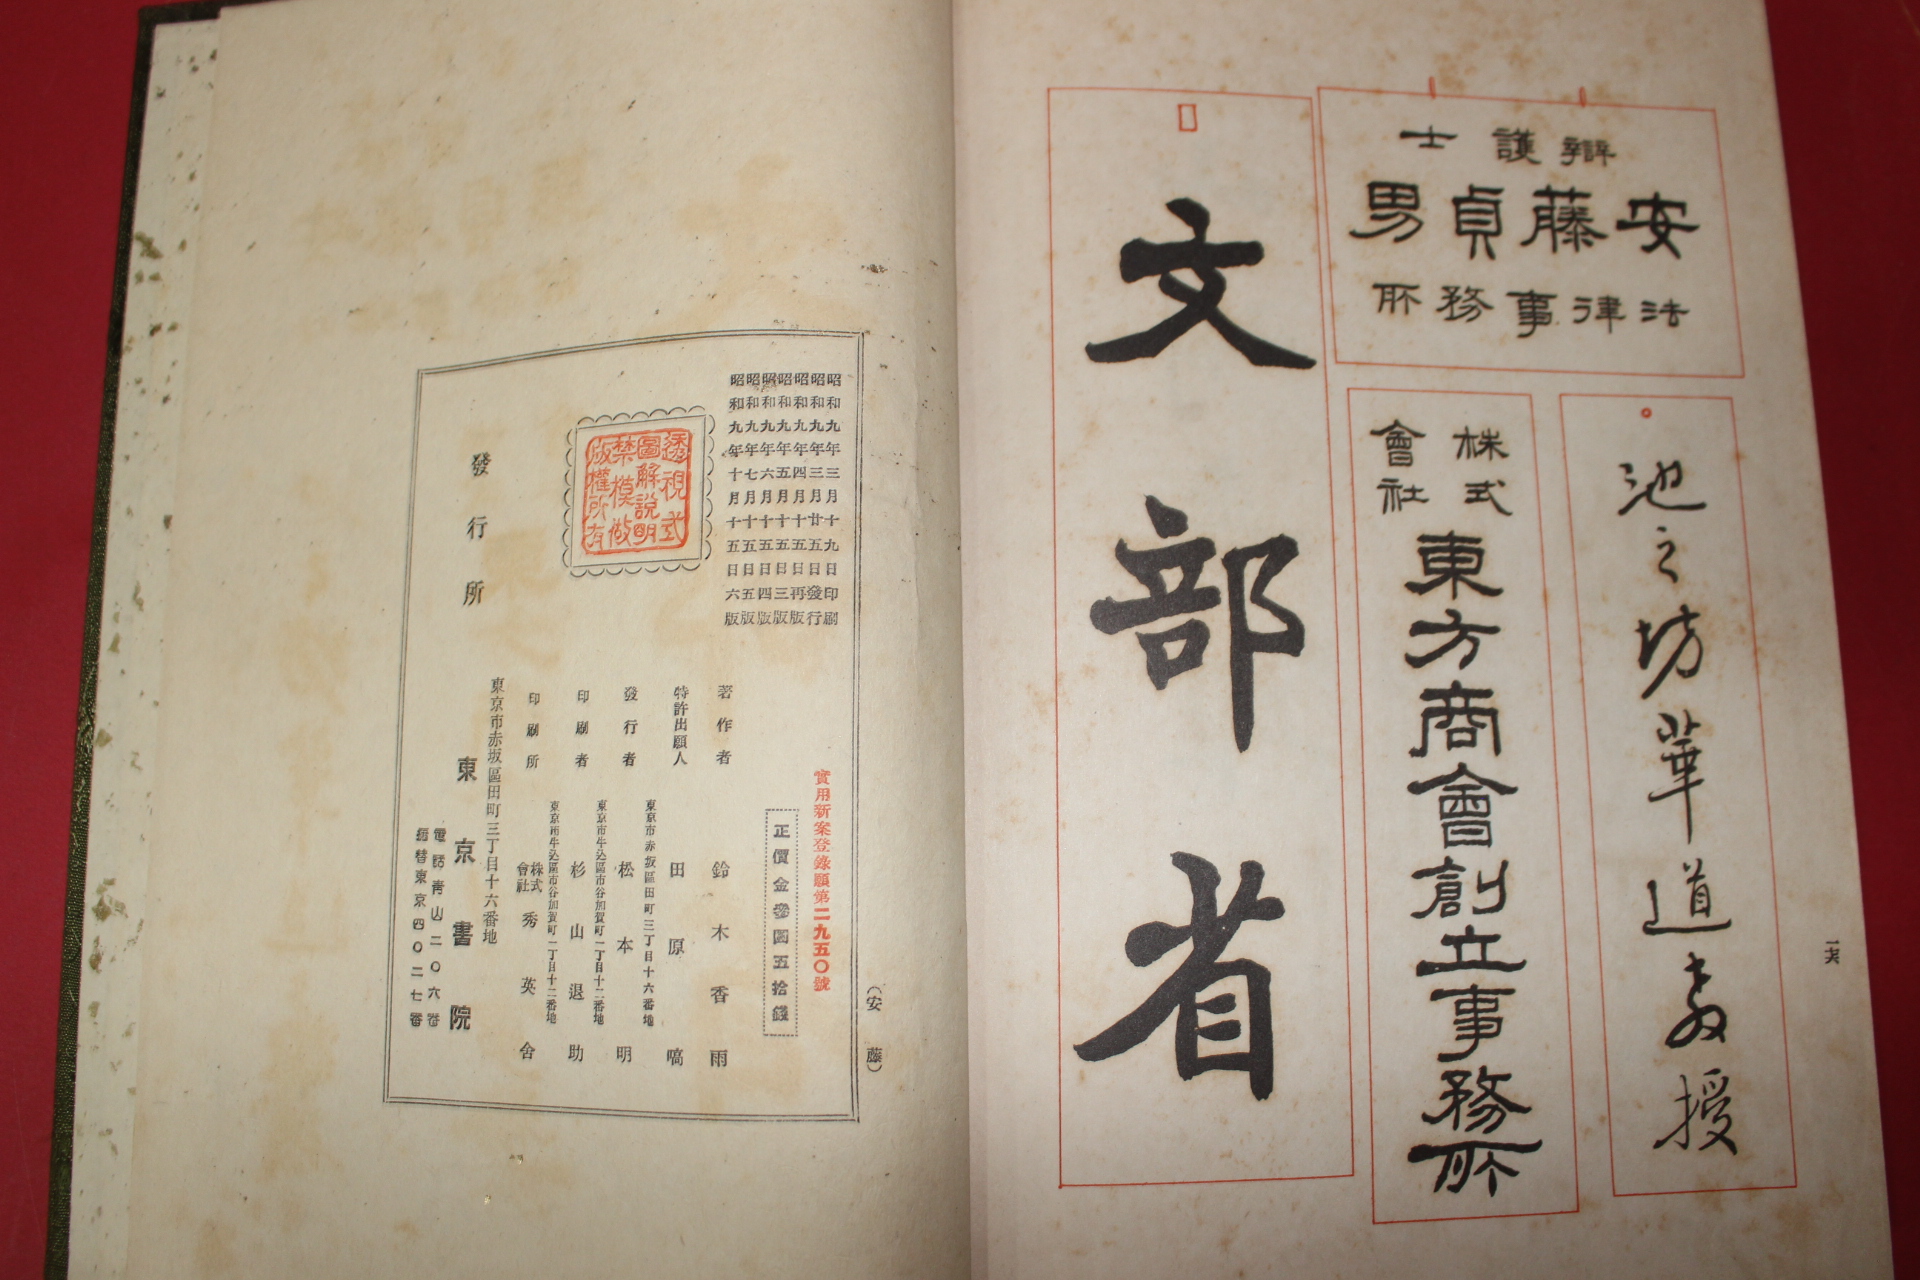 辯護士
安藤貞男
法律事務所
池之坊華道教授
株式
會社
東方商會創立事務所
文部省
一六
昭和九年三月十九日印刷
昭和九年三月廿五日發行
昭和九年四月十五日再版
昭和九年五月十五日三版
昭和九年六月十五日四版
昭和九年七月十五日五版
昭和九年十月十五日六版
透視式
圖解說明
禁模倣
版權所有
實用新案登錄願第二九五〇號
正價金參圓五拾錢
著作者 鈴木香雨
特許出願人 田原嗃
東京市赤坂區田町三丁目十六番地
發行者 松本明
東京市牛込區市谷加賀町一丁目十二番地
印刷者 杉山退助
東京市牛込區市谷加賀町一丁目十二番地
印刷所 株式會社 秀英舍
發行所
東京市赤坂區田町三丁目十六番地
東京書院
電話青山二〇六番
振替東京四〇二七番
(安藤)